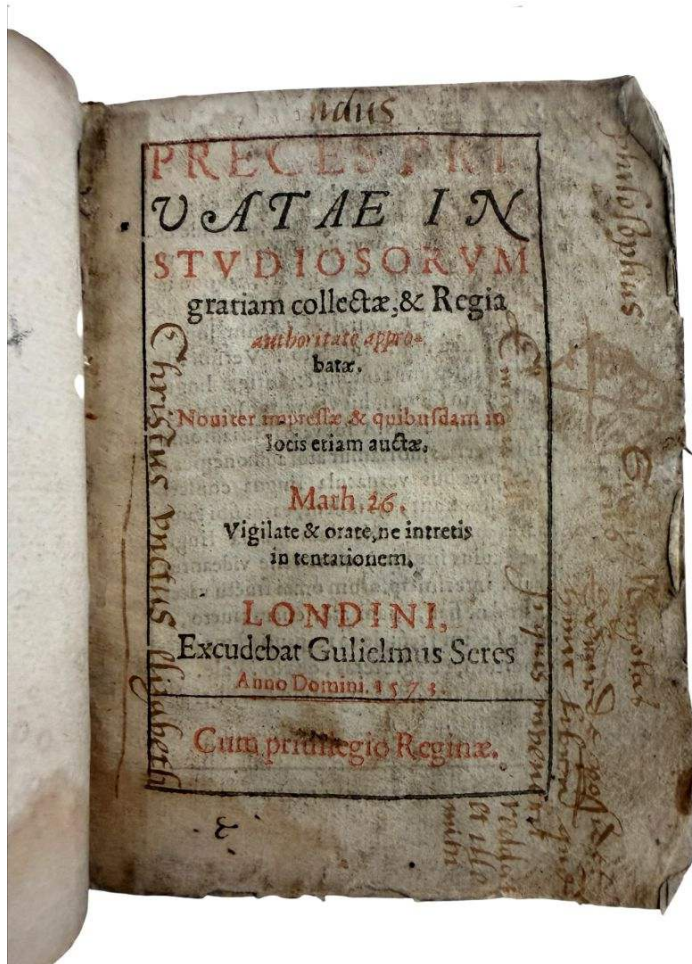 ndus
PRECES PRI
VATAE IN
STVDIOSORVM
gratiam collectæ, & Regia
authoritate appro-
batæ.
Nouiter impressæ & quibusdam in
locis etiam auctæ.
Math. 26.
Vigilate & orate, ne intretis
in tentationem.
LONDINI,
Excudebat Gulielmus Seres
Anno Domini. 1573.
Cum priuilegio Reginæ.
Christus vnctus
philosophus
Nicolas
hunc librum
si quis invenerit
mihi